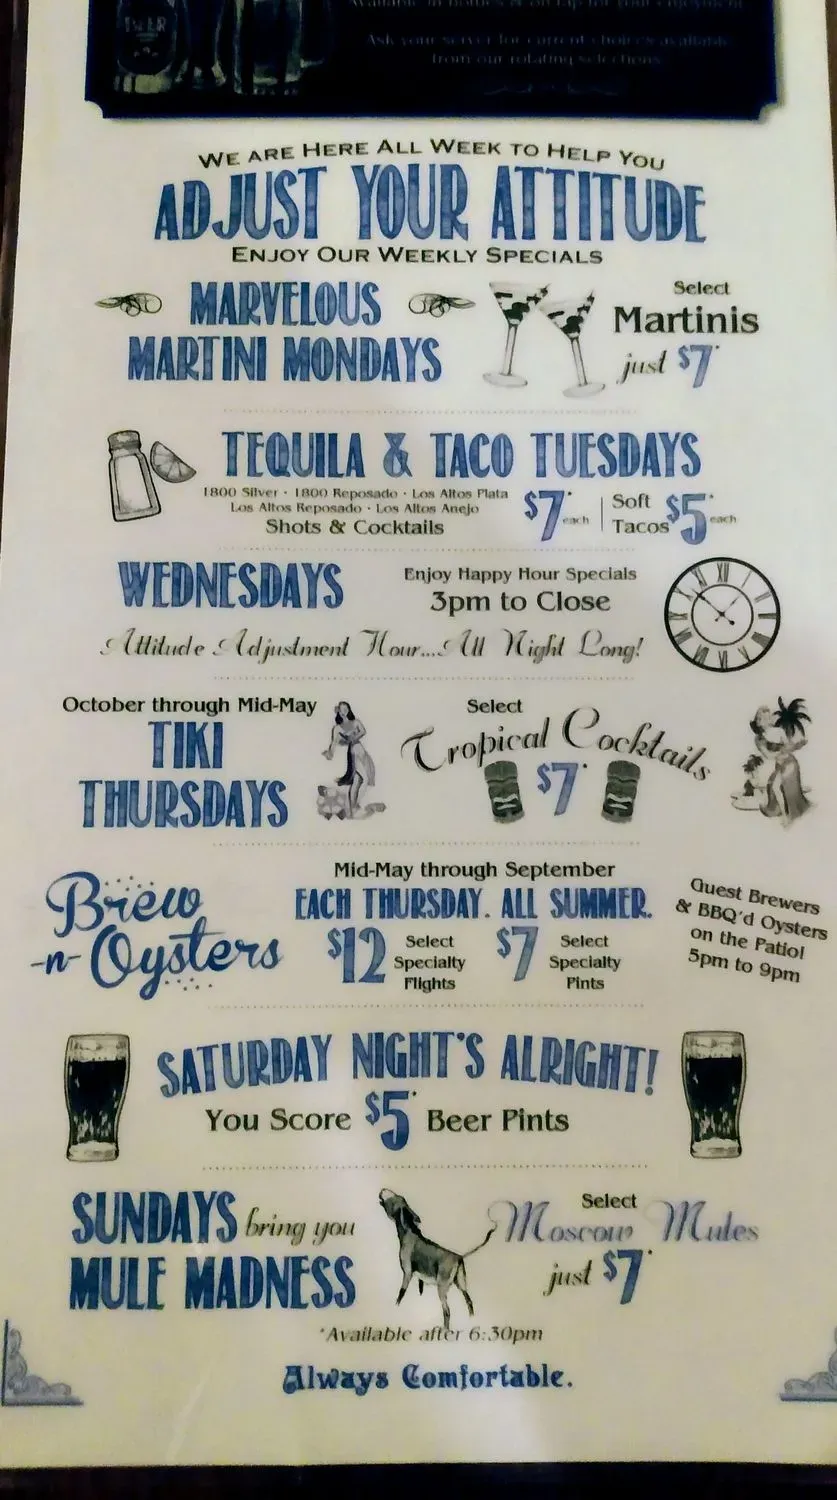 BEER
Available in bottles & on tap for your enjoyment.
Ask your server for current choices available
from our rotating selections.
WE ARE HERE ALL WEEK TO HELP YOU
ADJUST YOUR ATTITUDE
ENJOY OUR WEEKLY SPECIALS
MARVELOUS
MARTINI MONDAYS
Select
Martinis
just $7*
TEQUILA & TACO TUESDAYS
1800 Silver · 1800 Reposado · Los Altos Plata
Los Altos Reposado · Los Altos Anejo
Shots & Cocktails
$7* each
Soft
Tacos $5* each
WEDNESDAYS
Enjoy Happy Hour Specials
3pm to Close
Attitude Adjustment Hour...All Night Long!
October through Mid-May
TIKI
THURSDAYS
Select
Tropical Cocktails
$7*
Brew
-n- Oysters
Mid-May through September
EACH THURSDAY. ALL SUMMER.
$12 Select
Specialty
Flights
$7 Select
Specialty
Pints
Guest Brewers
& BBQ'd Oysters
on the Patio!
5pm to 9pm
SATURDAY NIGHT'S ALRIGHT!
You Score $5* Beer Pints
SUNDAYS bring you
MULE MADNESS
Select
Moscow Mules
just $7*
*Available after 6:30pm
Always Comfortable.